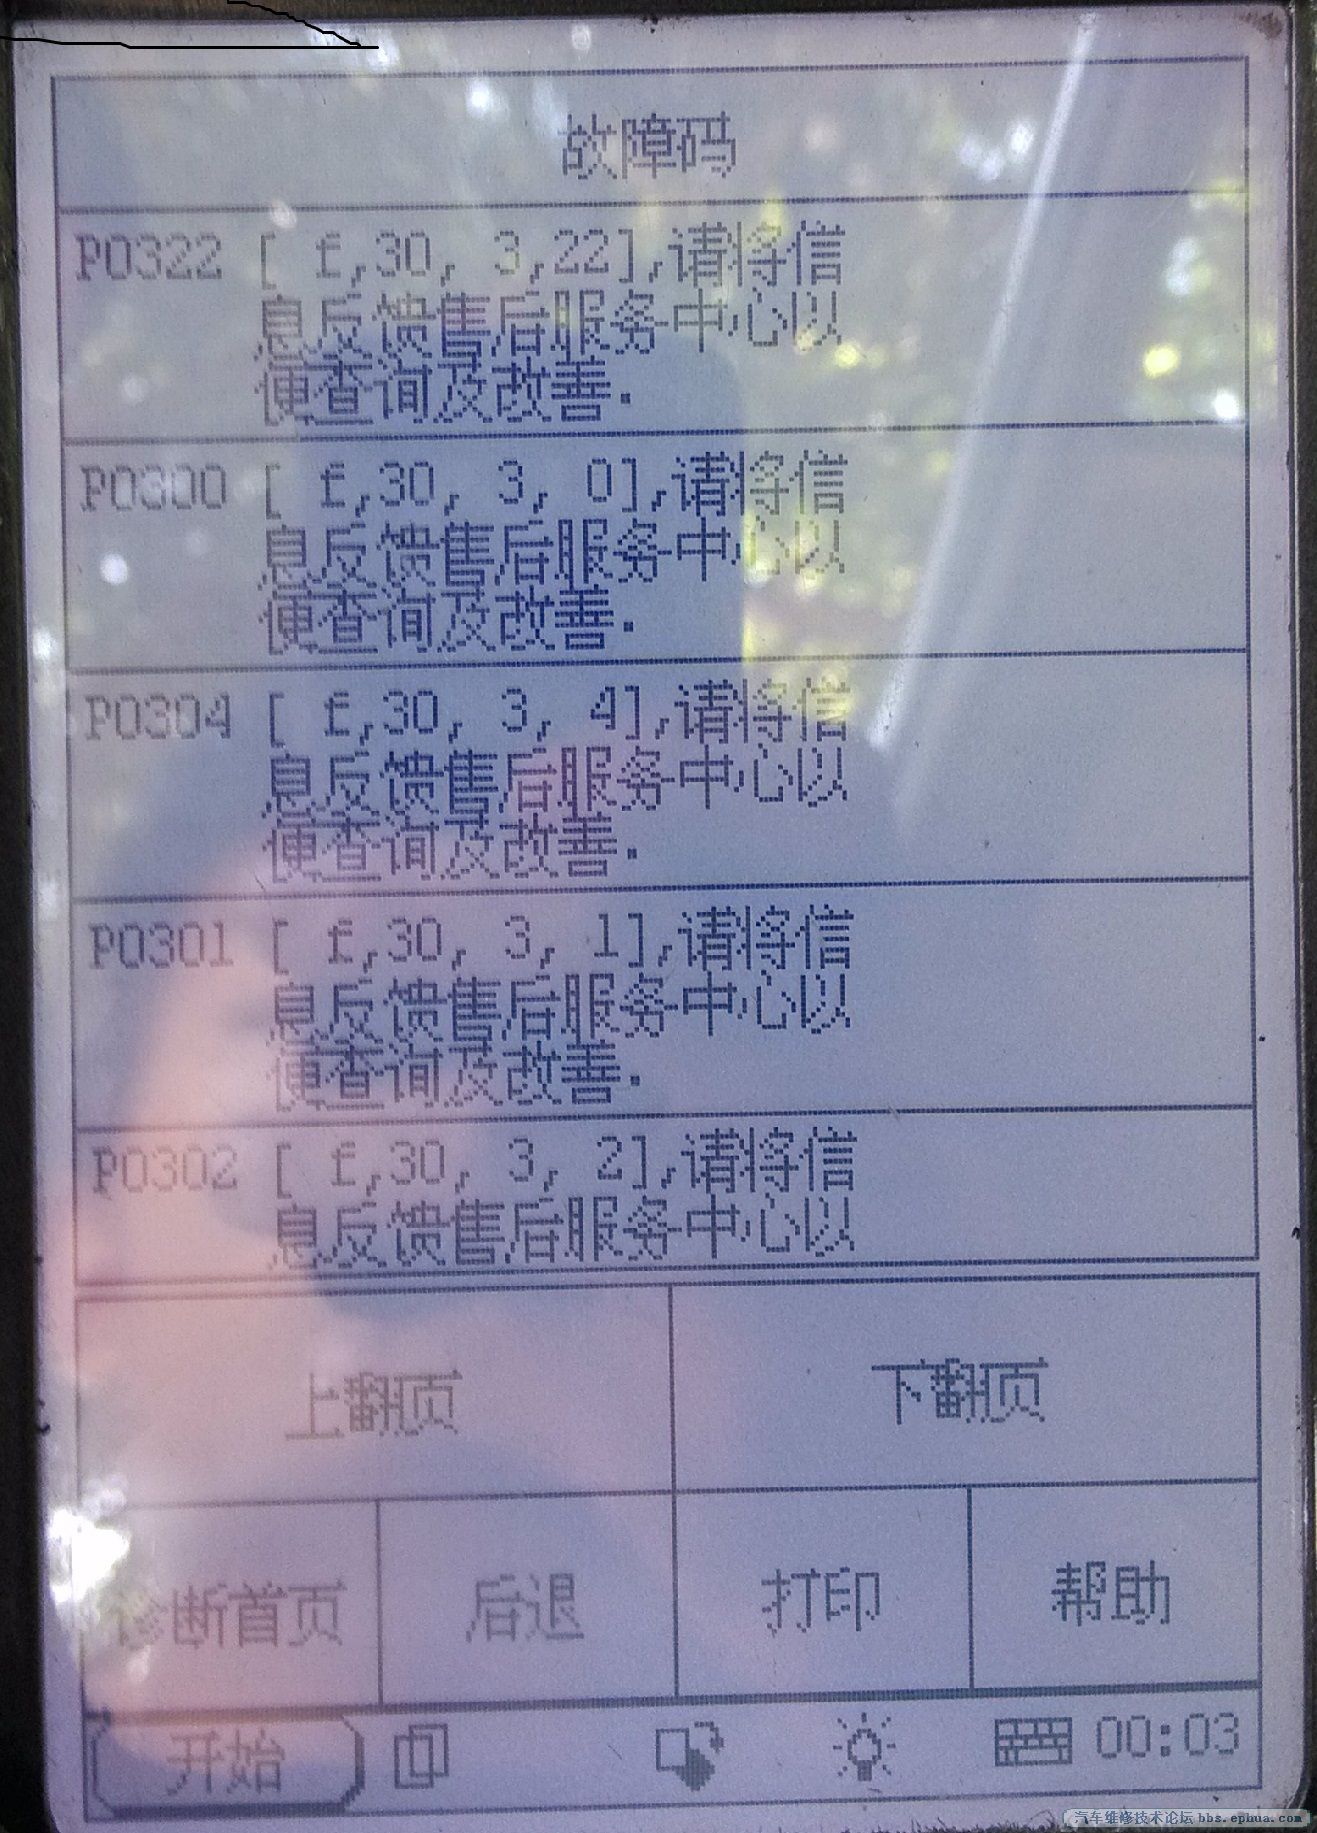 故障码
P0322 [ f,30, 3,22],请将信
息反馈售后服务中心以
便查询及改善.
P0300 [ f,30, 3, 0],请将信
息反馈售后服务中心以
便查询及改善.
P0304 [ f,30, 3, 4],请将信
息反馈售后服务中心以
便查询及改善.
P0301 [ f,30, 3, 1],请将信
息反馈售后服务中心以
便查询及改善.
P0302 [ f,30, 3, 2],请将信
息反馈售后服务中心以
上翻页 下翻页
诊断首页 后退 打印 帮助
开始 00:03
汽车维修技术论坛 bbs.ephua.com